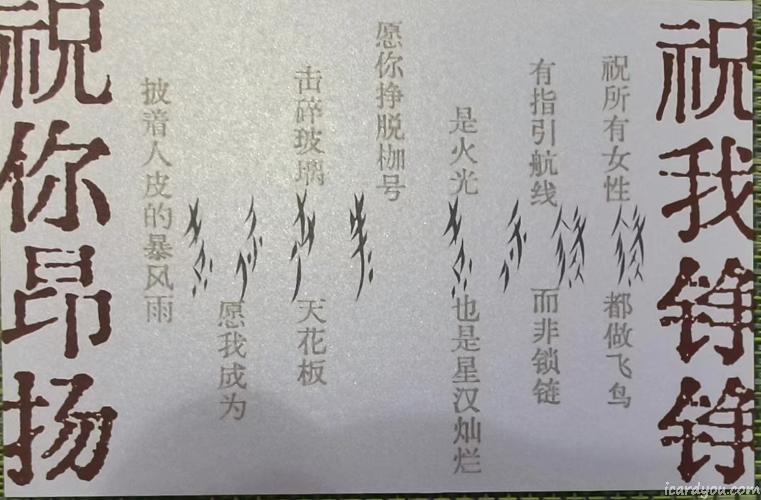 祝我铮铮
祝所有女性
都做飞鸟
有指引航线
而非锁链
是火光
也是星汉灿烂
愿你挣脱枷号
击碎玻璃
天花板
愿我成为
披着人皮的暴风雨
祝你昂扬
icardyou.com